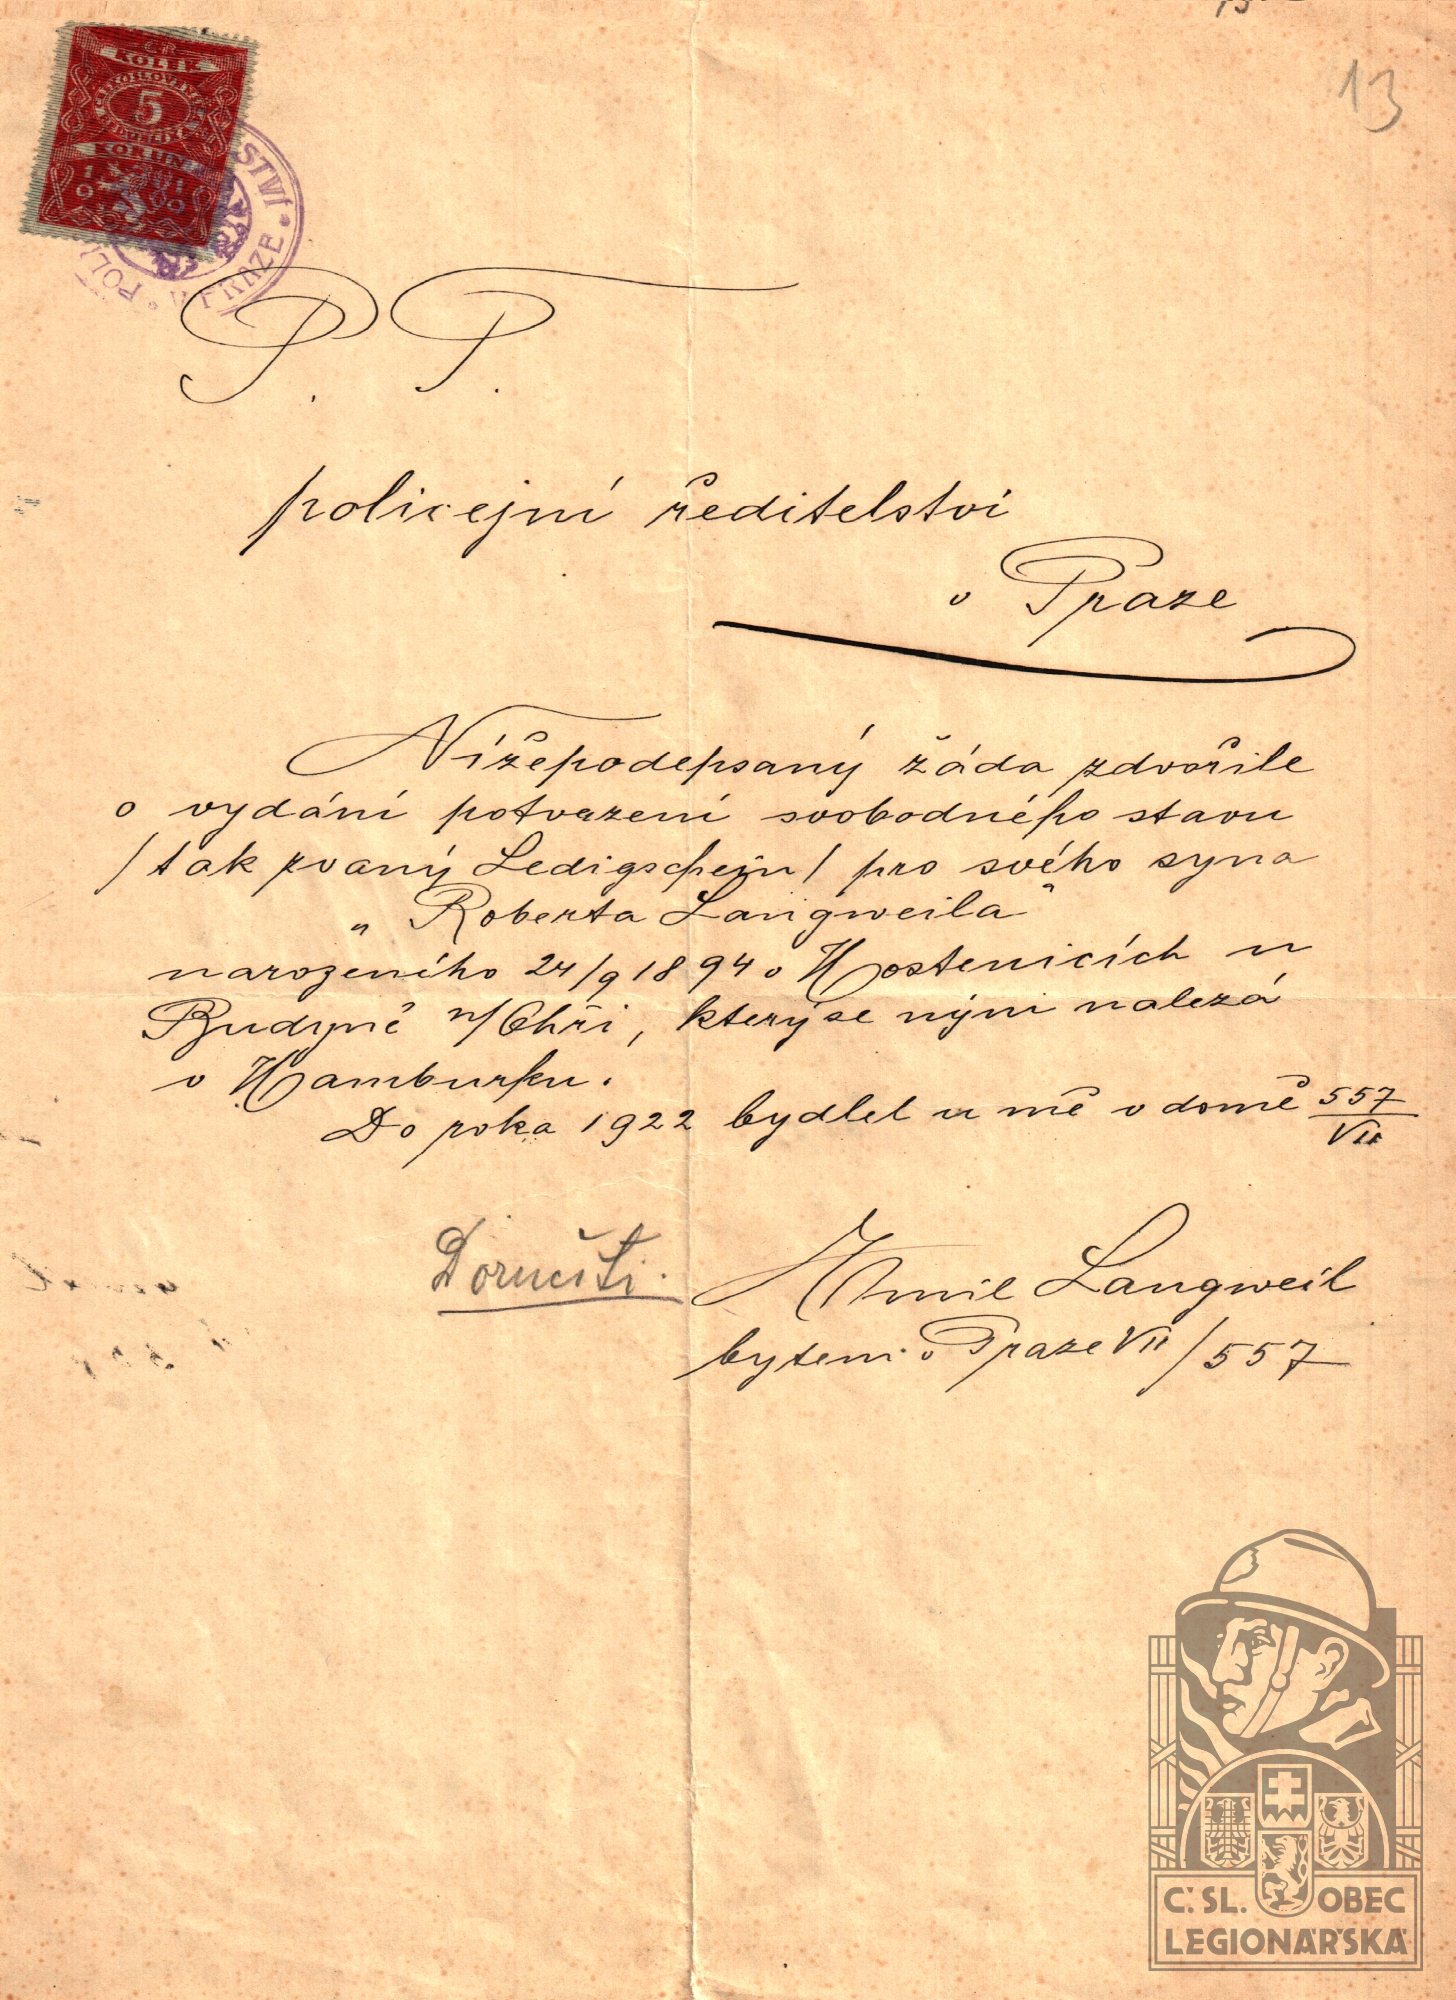 13
KOLEK
5
KORUN
POLI STVÍ • V PRAZE •
P. T.
policejní ředitelství
v Praze
Nížepodepsaný žáda zdvořile
o vydání potvrzení svobodného stavu
/tak zvaný Ledigschein/ pro svého syna
„Roberta Langweila"
narozeného 24/9 1894 v Hostenicích u
Budyně n/Ohří, který se nýni nalezá
v Hamburku.
Do roka 1922 bydlel u mě v domě 557/VII
Doručiti.
Emil Langweil
bytem v Praze VII/557
Č. SL. OBEC
LEGIONÁŘSKÁ